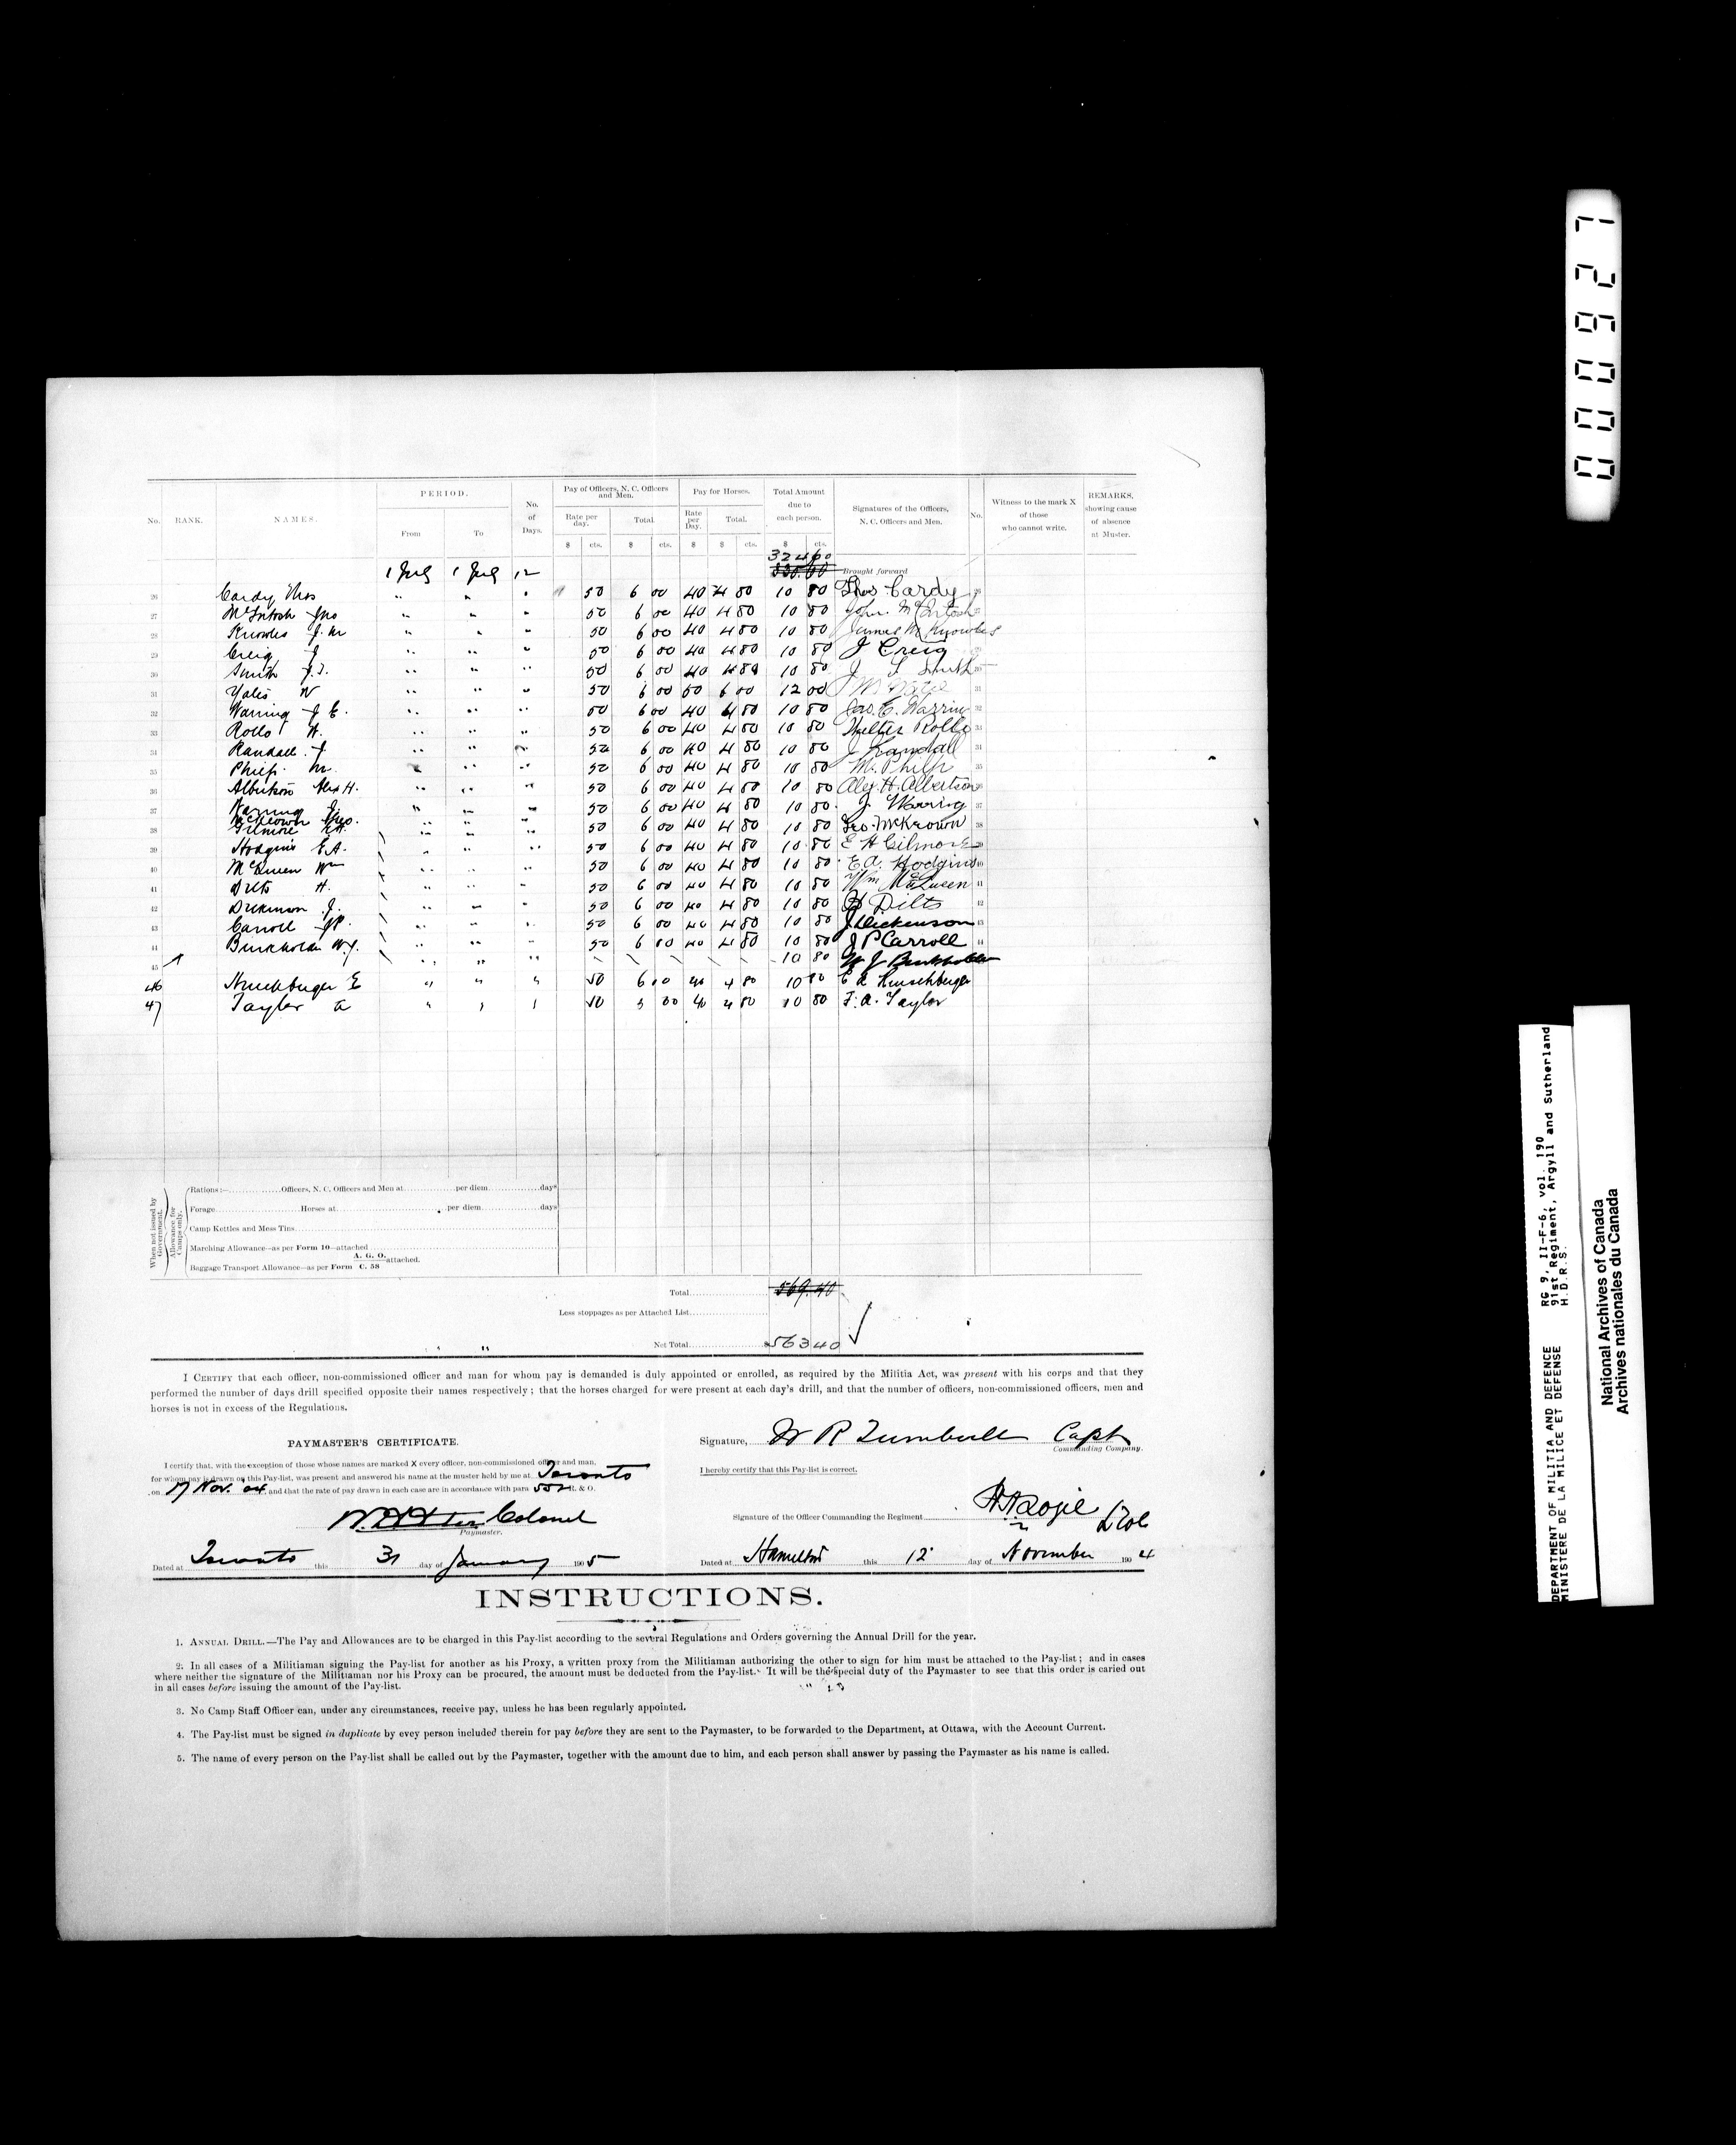 PERIOD.
Pay of Officers, N. C. Officers and Men.
Pay for Horses.
Total Amount due to each person.
No. RANK. NAMES. From To No. of Days. Rate per day. Total. Rate per Day. Total. Signatures of the Officers, N. C. Officers and Men. No. Witness to the mark X of those who cannot write. REMARKS, showing cause of absence at Muster.
$ cts. $ cts. $ $ cts. $ cts.
324 60
1 July 1 July 12 Brought forward
26 Cardy Thos " " " 50 6 00 40 4 80 10 80 Thos Cardy
27 McIntosh Jno " " " 50 6 00 40 4 80 10 80 John McIntosh
28 Knowles J. M " " " 50 6 00 40 4 80 10 80 James M Knowles
29 Creig J " " " 50 6 00 40 4 80 10 80 J Creig
30 Smith J. " " " 50 6 00 40 4 80 10 80 J Smith
31 Yates W " " " 50 6 00 50 6 00 12 00 31
32 Warring J C. " " " 50 6 00 40 4 80 10 80 Jas. C. Warring 32
33 Rollo W. " " " 50 6 00 40 4 80 10 80 Walter Rollo 33
34 Randall J. " " " 50 6 00 40 4 80 10 80 J Randall 34
35 Philp M. " " " 50 6 00 40 4 80 10 80 M. Philp 35
36 Albertson Alex H. " " " 50 6 00 40 4 80 10 80 Alex. H. Albertson 36
37 Warring J. " " " 50 6 00 40 4 80 10 80 J. Warring 37
McKeown Geo.
38 Gilmore E.H. " " " 50 6 00 40 4 80 10 80 Geo. McKeown 38
39 Hodgins E.A. " " " 50 6 00 40 4 80 10 80 E H Gilmore 39
40 McQueen Wm " " " 50 6 00 40 4 80 10 80 E.A. Hodgins 40
41 Dilts H. " " " 50 6 00 40 4 80 10 80 Wm McQueen 41
42 Dickinson J. " " " 50 6 00 40 4 80 10 80 H Dilts 42
43 Carroll J P. " " " 50 6 00 40 4 80 10 80 J Dickenson 43
44 Burkholder W J. " " " 50 6 00 40 4 80 10 80 J P Carroll 44
45 " " " 10 80 W J Burkholder
46 E " " " 50 6 00 40 4 80 10 80
47 Taylor a " " " 50 00 40 4 80 10 80 F. A. Taylor
When not issued by Government.
Allowance for Camps only.
Rations:— Officers, N. C. Officers and Men at per diem days
Forage Horses at per diem days
Camp Kettles and Mess Tins
Marching Allowance—as per Form 10—attached
Baggage Transport Allowance—as per Form A. G. O. C. 58 attached.
Total 569.40
Less stoppages as per Attached List
Net Total 563 40
I CERTIFY that each officer, non-commissioned officer and man for whom pay is demanded is duly appointed or enrolled, as required by the Militia Act, was present with his corps and that they
performed the number of days drill specified opposite their names respectively; that the horses charged for were present at each day's drill, and that the number of officers, non-commissioned officers, men and
horses is not in excess of the Regulations.
Signature, W R Turnbull Capt
Commanding Company.
PAYMASTER'S CERTIFICATE.
I certify that, with the exception of those whose names are marked X every officer, non-commissioned officer and man,
for whom pay is drawn on this Pay-list, was present and answered his name at the muster held by me at Toronto
on 17 Nov. 04 and that the rate of pay drawn in each case are in accordance with para 552 R. & O.
Colonel
Paymaster.
Dated at Toronto this 31 day of January 1905
I hereby certify that this Pay-list is correct.
Signature of the Officer Commanding the Regiment Logie
Dated at Hamilton this 12 day of November 1904
INSTRUCTIONS.
1. ANNUAL DRILL.—The Pay and Allowances are to be charged in this Pay-list according to the several Regulations and Orders governing the Annual Drill for the year.
2. In all cases of a Militiaman signing the Pay-list for another as his Proxy, a written proxy from the Militiaman authorizing the other to sign for him must be attached to the Pay-list; and in cases
where neither the signature of the Militiaman nor his Proxy can be procured, the amount must be deducted from the Pay-list. It will be the special duty of the Paymaster to see that this order is caried out
in all cases before issuing the amount of the Pay-list.
3. No Camp Staff Officer can, under any circumstances, receive pay, unless he has been regularly appointed.
4. The Pay-list must be signed in duplicate by evey person included therein for pay before they are sent to the Paymaster, to be forwarded to the Department, at Ottawa, with the Account Current.
5. The name of every person on the Pay-list shall be called out by the Paymaster, together with the amount due to him, and each person shall answer by passing the Paymaster as his name is called.
000927
DEPARTMENT OF MILITIA AND DEFENCE
MINISTERE DE LA MILICE ET DEFENSE
RG 9, II-F-6, vol. 190
91st Regiment, Argyll and Sutherland
H.D.R.S.
National Archives of Canada
Archives nationales du Canada